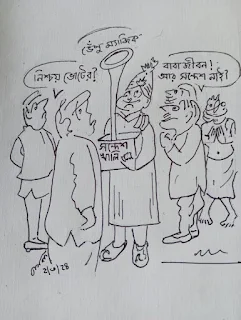 ভেঁপু ম্যাজিক
নিশ্চয় ভোটের!
বাবাজীবন!
আর সন্দেশ নাই?
সন্দেশ
খালি
২/৩/২৪